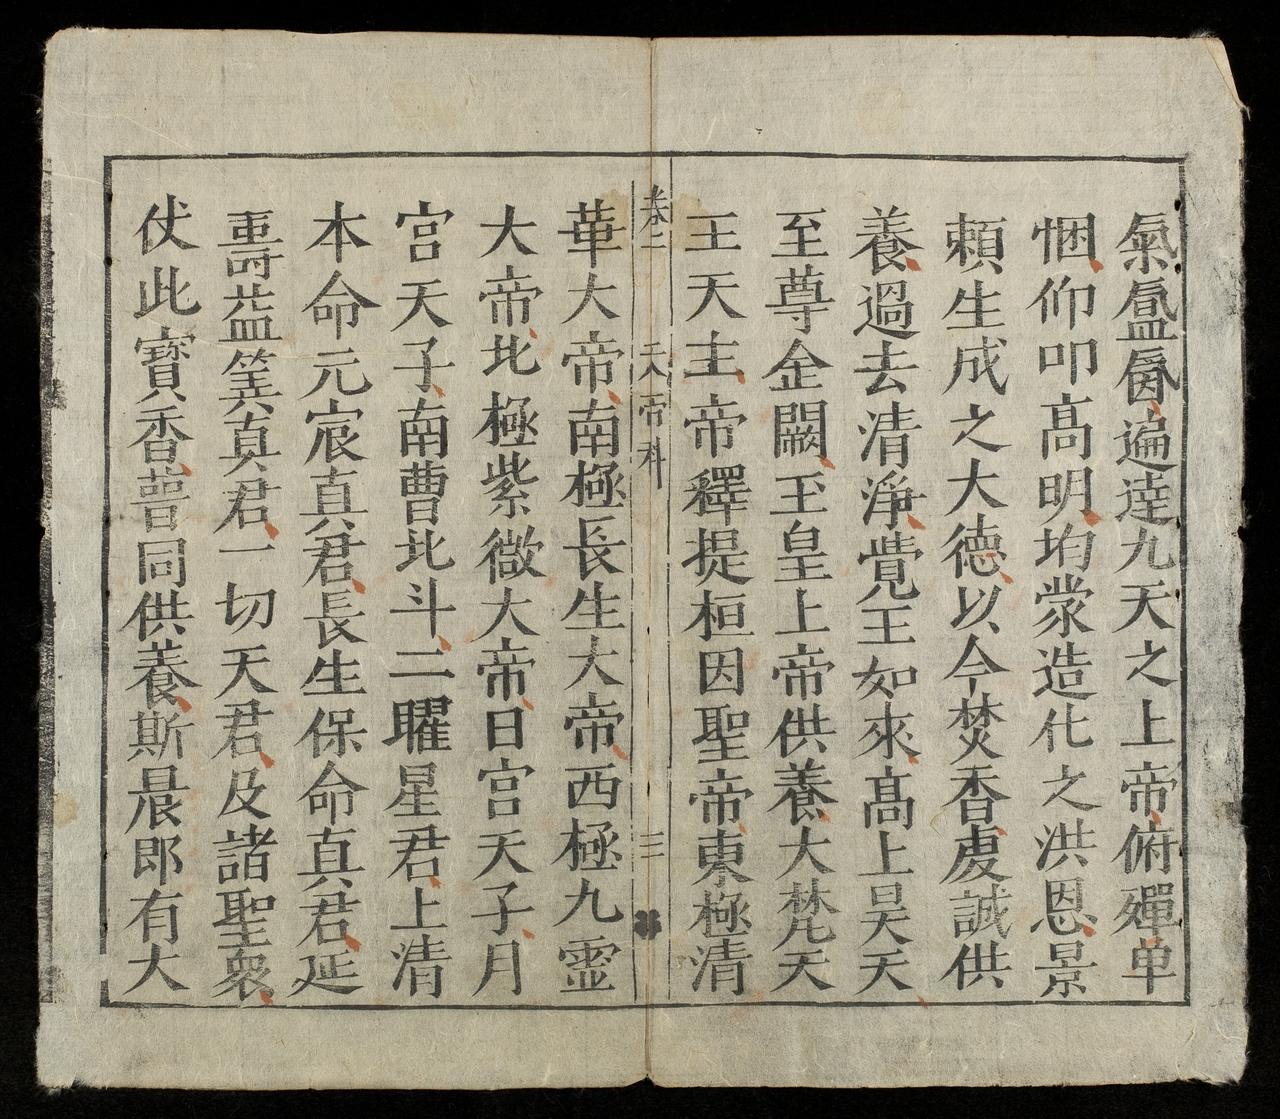 氣氳氤遍達九天之上帝俯殫单
悃仰叩高明均蒙造化之洪恩景
賴生成之大德以今焚香虔誠供
養過去清淨覺王如來高上昊天
至尊金闕玉皇上帝供養大梵天
王天主帝釋提桓因聖帝東極清
卷二 天帝科 三
華大帝南極長生大帝西極九霊
大帝北極紫微大帝日宮天子月
宮天子南曹北斗二曜星君上清
本命元宸真君長生保命真君延
壽益筭真君一切天君及諸聖衆
仗此寶香普同供養斯晨郎有大